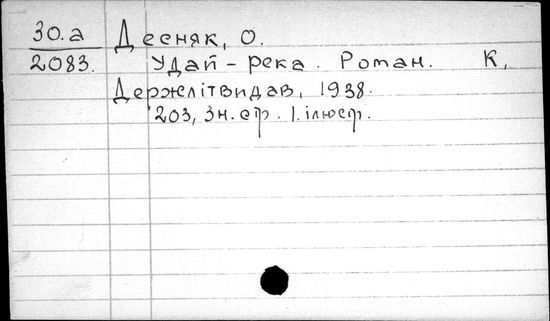 30.а Десняк, О.
2083. Удай-река. Роман. К,
Держлітвидав, 1938.
203, 3н. стр. 1. ілюстр.